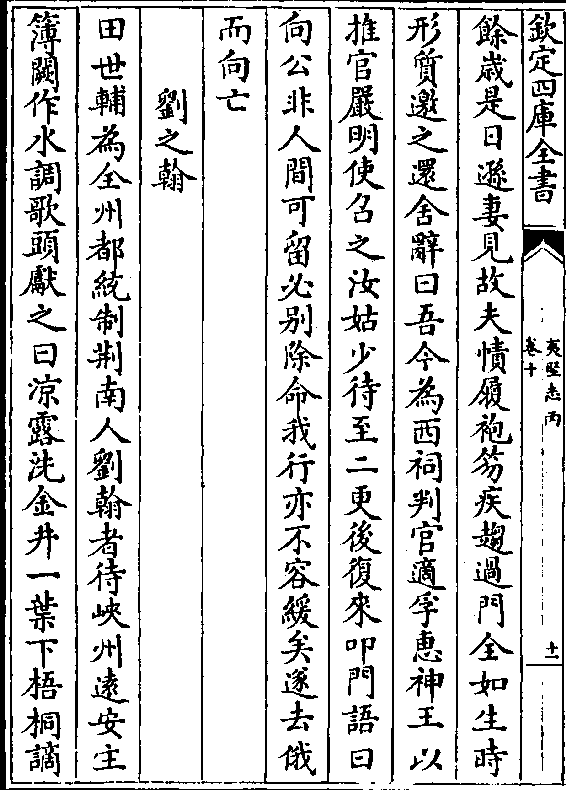 欽定四庫全書
夷堅志丙
卷十
十一
餘歲是日遜妻見故夫幘履袍笏疾趨過門全如生時
形質邀之還舍辭曰吾今為西祠判官適孚惠神王以
推官嚴明使召之汝姑少待至二更後復來叩門語曰
向公非人間可留必别除命我行亦不容緩矣遂去俄
而向亡
劉之翰
田世輔為全州都統制荆南人劉翰者待峽州遠安主
簿闕作水調歌頭獻之曰凉露洗金井一葉下梧桐謫